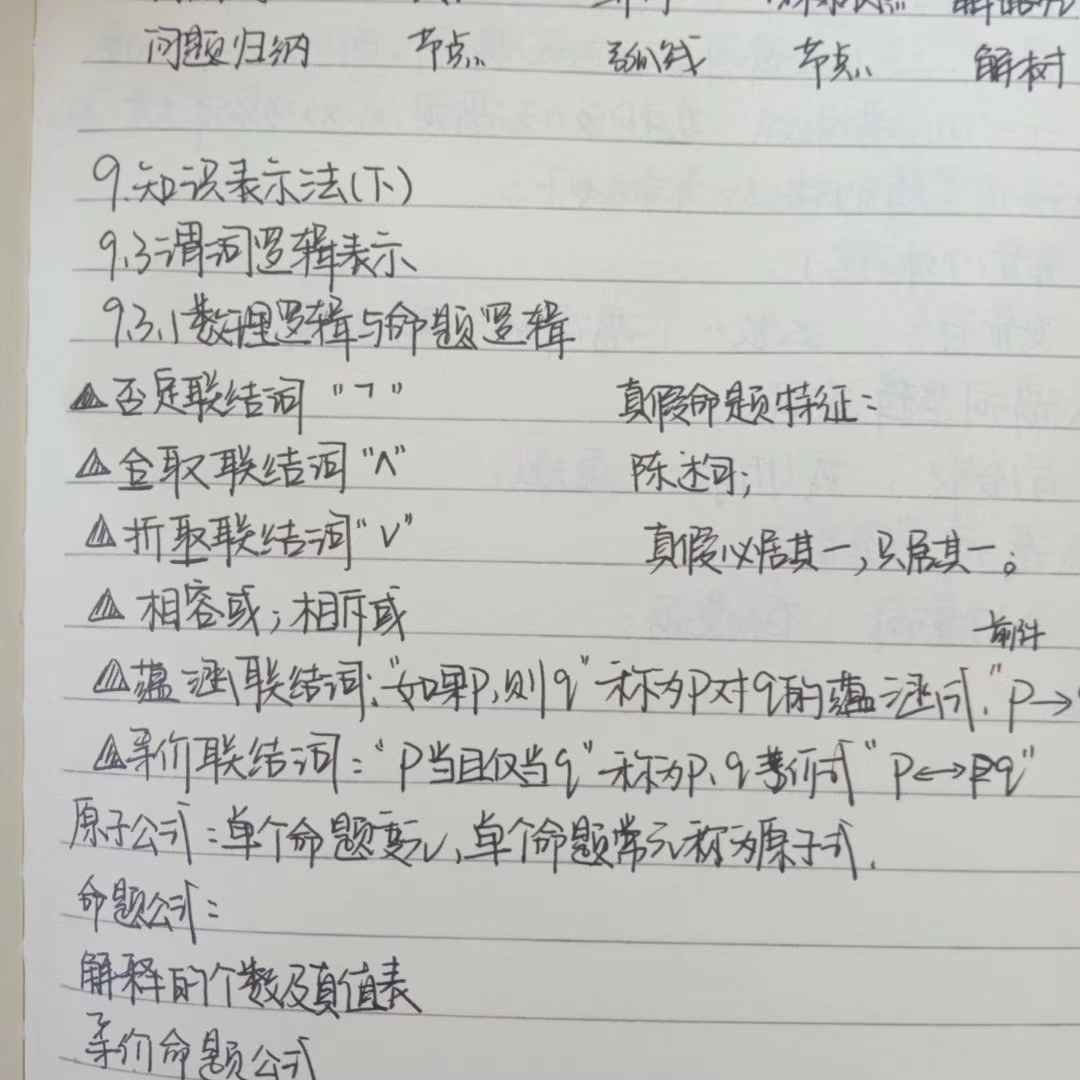 问题归纳 节点 弧线 节点 解树
9.知识表示法(下)
9.3谓词逻辑表示
9.3.1数理逻辑与命题逻辑
▲否定联结词 "¬" 真假命题特征:
△合取联结词"∧" 陈述句;
△折取联结词"∨" 真假必居其一,只居其一。
△相容或;相斥或
前件
△蕴涵联结词:"如果p,则q"称为p对q的蕴涵式."p→
△等价联结词:"p当且仅当q"称为p、q等价式"p↔q"
原子公式:单个命题变元,单个命题常元称为原子式.
命题公式:
解释的个数及真值表
等价命题公式